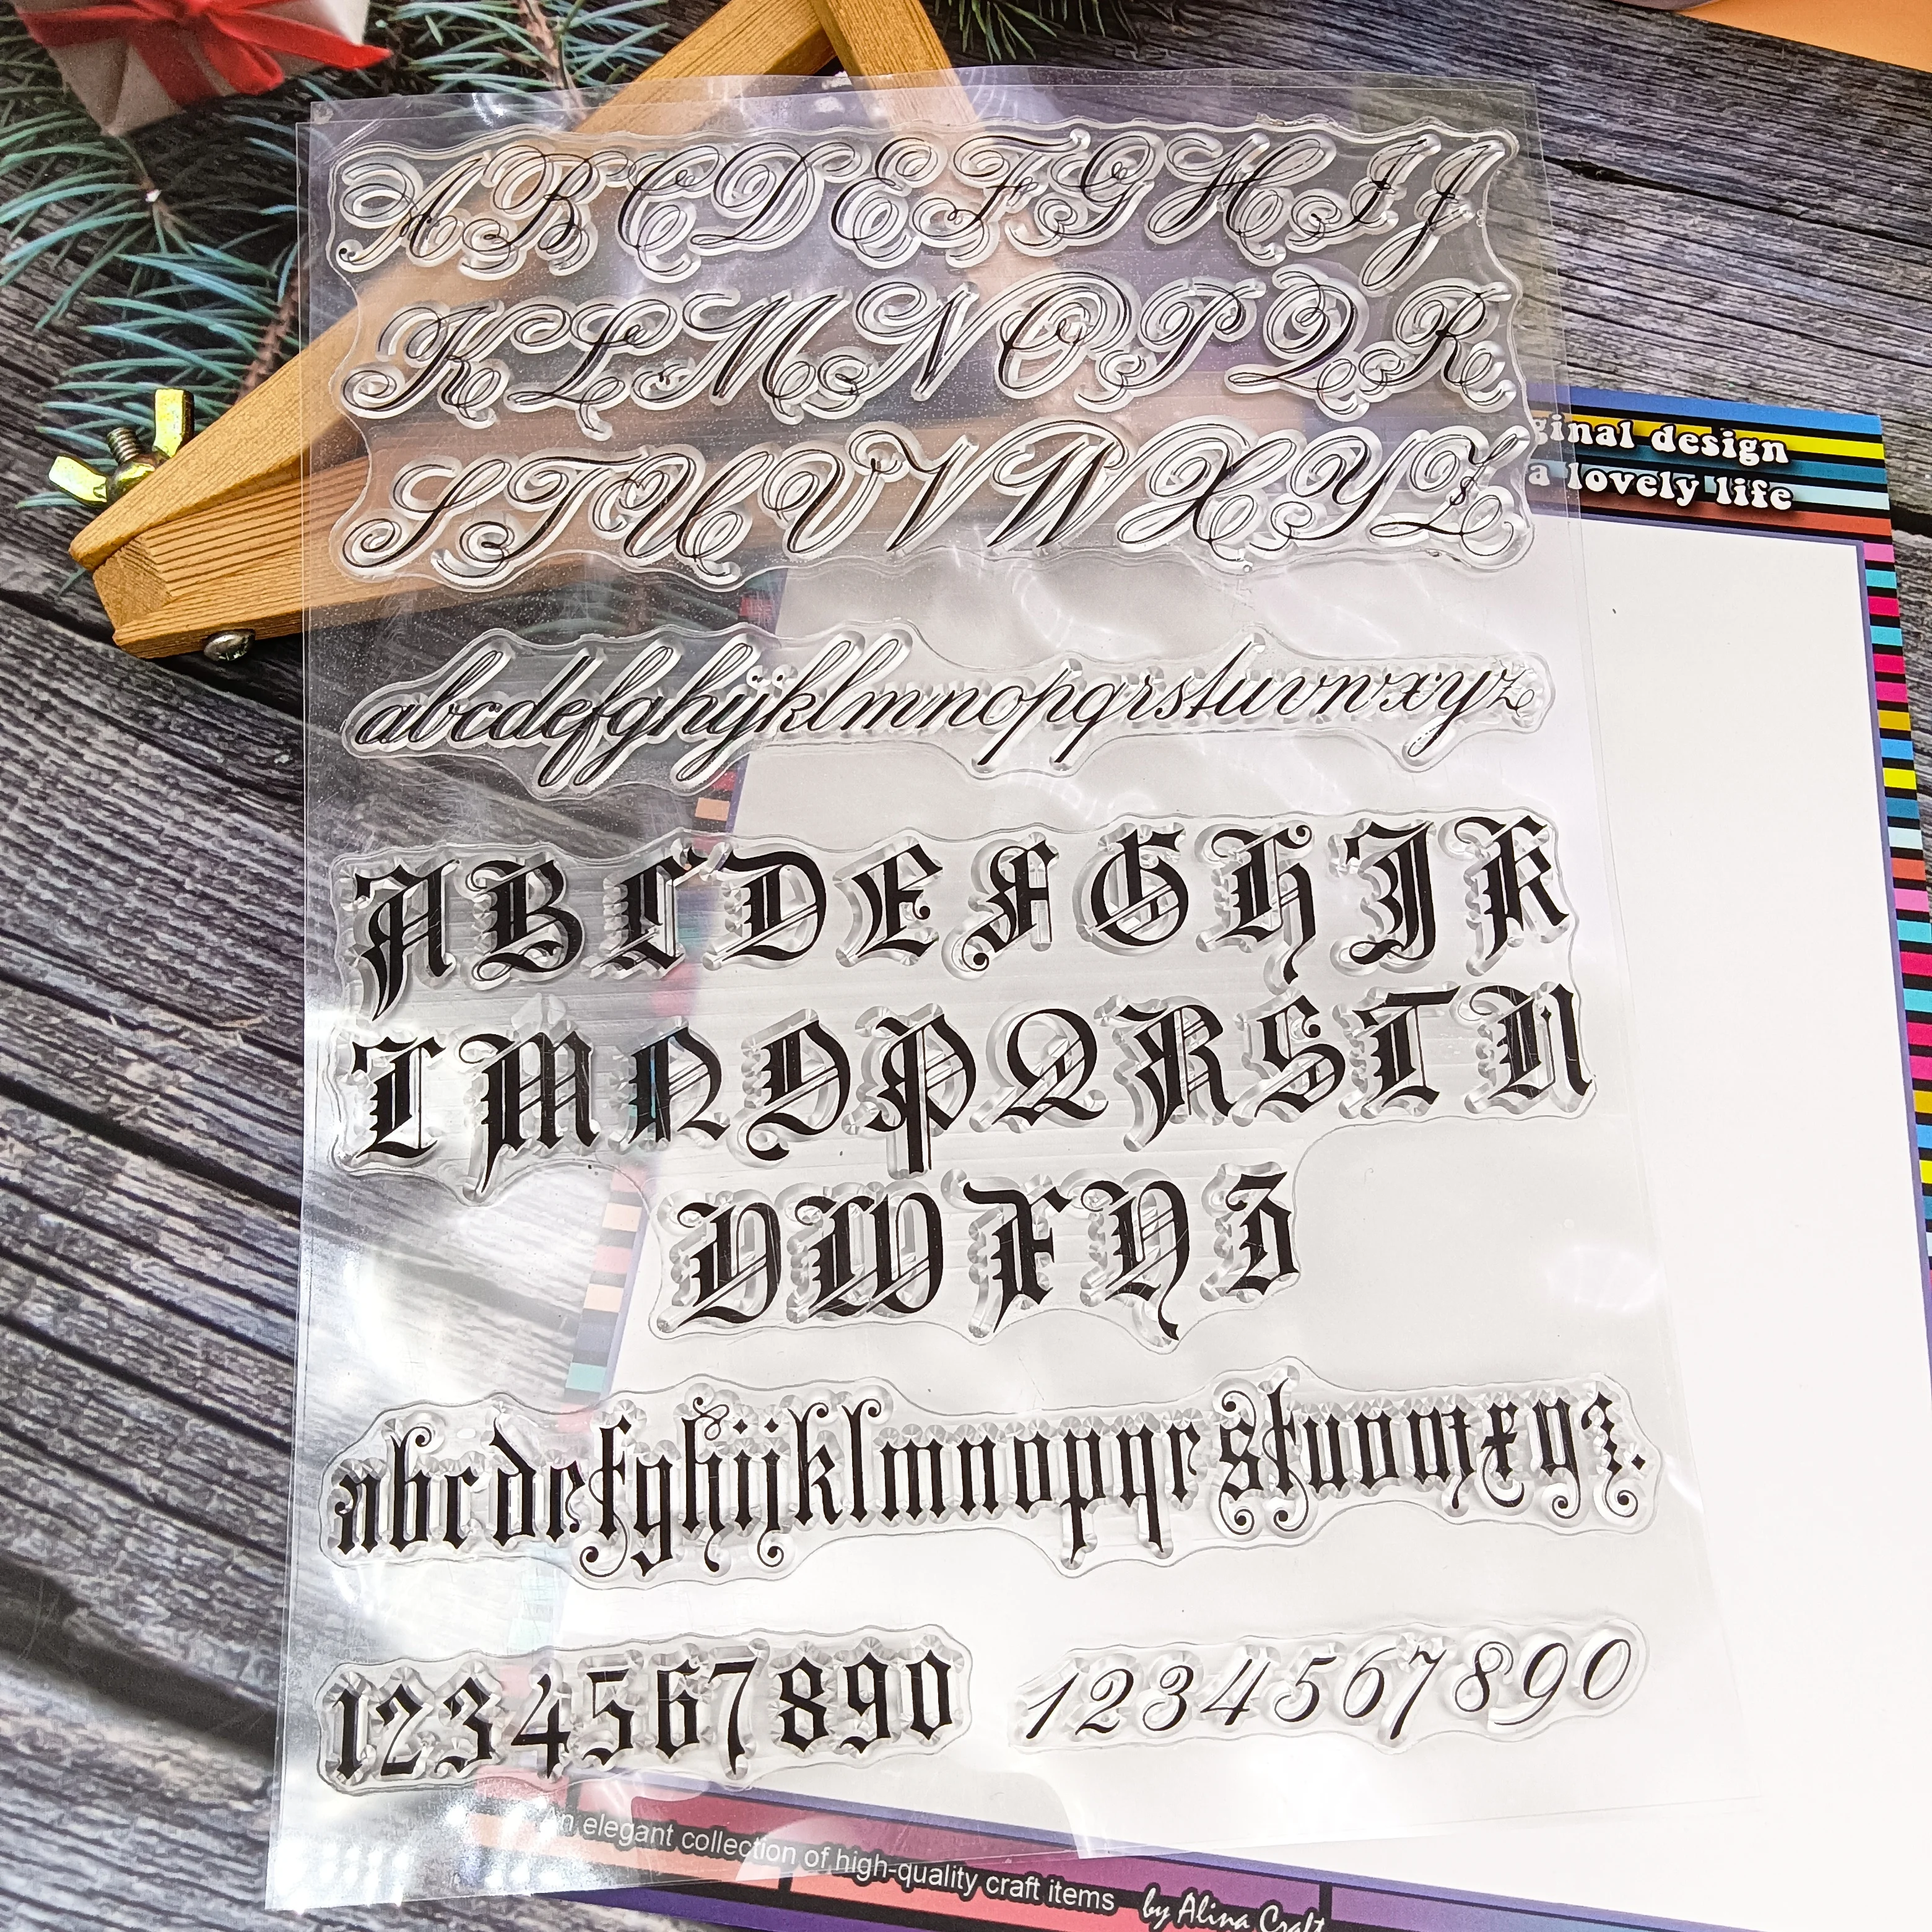 A B C D E F G H I J
K L M N O P Q R
S T U V W X Y Z
ginal design
a lovely life
abcdefghijklmnopqrstuvwxyz
A B C D E F G H J K
L M N O P Q R S T U
V W X Y Z
abcdefghijklmnopqrstuvwxyz.
1234567890
1234567890
n elegant collection of high-quality craft items by Alina Craft